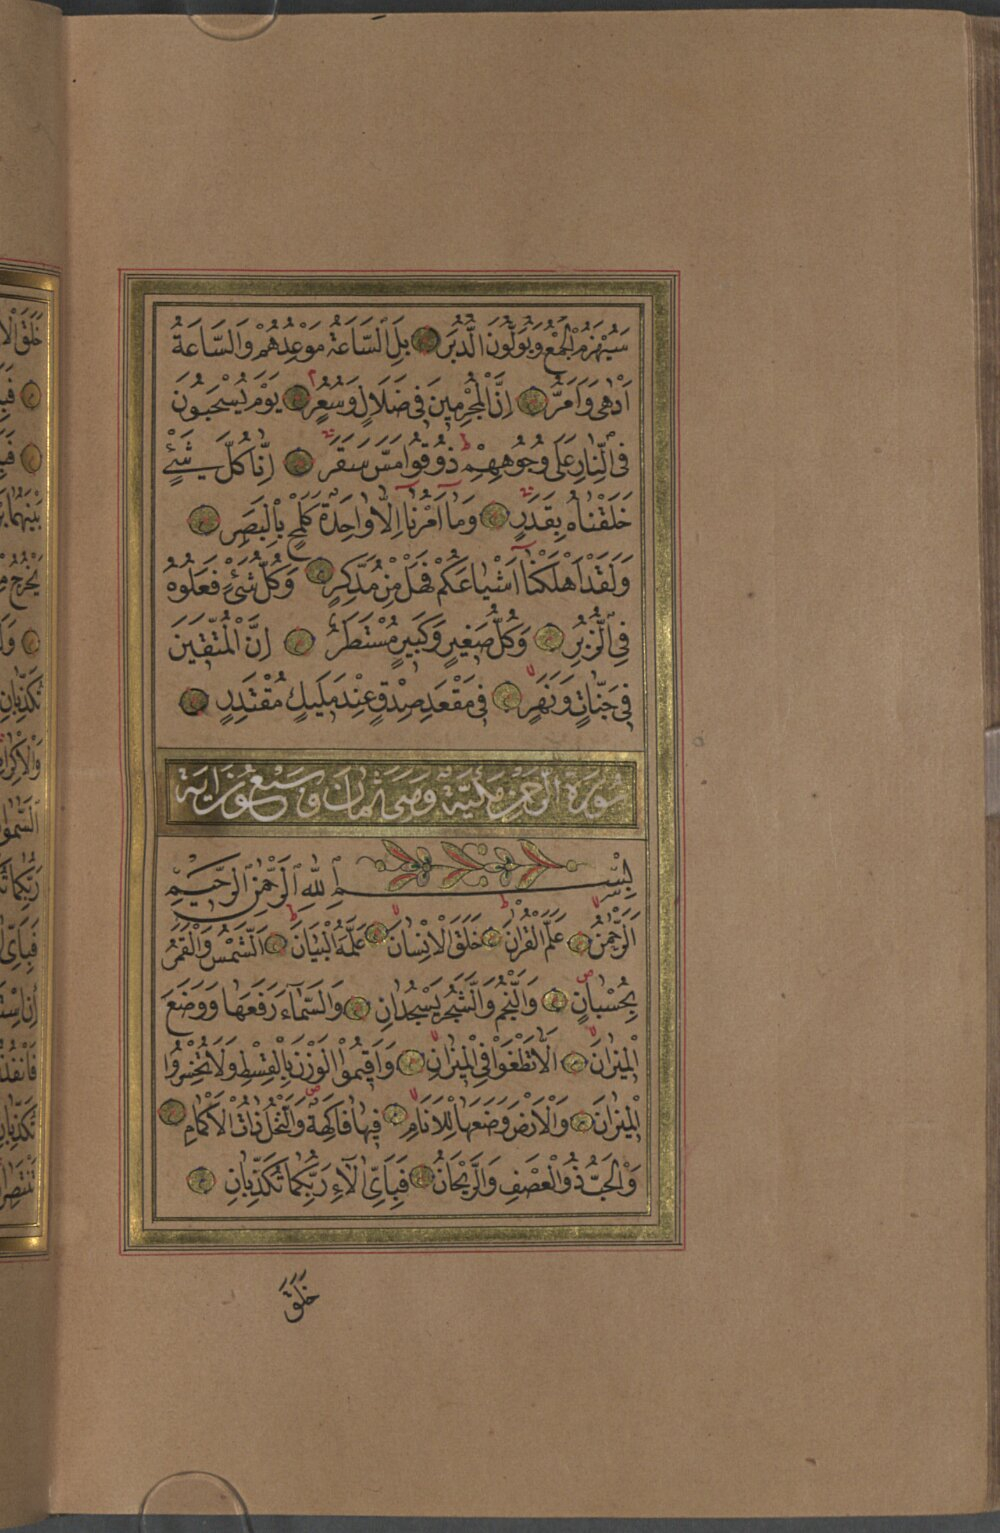 سَيُهْزَمُ الْجَمْعُ وَيُوَلُّونَ الدُّبُرَ بَلِ السَّاعَةُ مَوْعِدُهُمْ وَالسَّاعَةُ
اَدْهٰى وَاَمَرُّ اِنَّ الْمُجْرِمِينَ فِى ضَلَالٍ وَسُعُرٍ يَوْمَ يُسْحَبُونَ
فِى النَّارِ عَلٰى وُجُوهِهِمْ ذُوقُوا مَسَّ سَقَرَ اِنَّا كُلَّ شَىْءٍ
خَلَقْنَاهُ بِقَدَرٍ وَمَا اَمْرُنَا اِلَّا وَاحِدَةٌ كَلَمْحٍ بِالْبَصَرِ
وَلَقَدْ اَهْلَكْنَا اَشْيَاعَكُمْ فَهَلْ مِنْ مُدَّكِرٍ وَكُلُّ شَىْءٍ فَعَلُوهُ
فِى الزُّبُرِ وَكُلُّ صَغِيرٍ وَكَبِيرٍ مُسْتَطَرٌ اِنَّ الْمُتَّقِينَ
فِى جَنَّاتٍ وَنَهَرٍ فِى مَقْعَدِ صِدْقٍ عِنْدَ مَلِيكٍ مُقْتَدِرٍ
سُورَةُ الرَّحْمٰنِ مَكِّيَّةٌ وَهِىَ ثَمَانٌ وَسَبْعُونَ اٰيَة
بِسْمِ اللّٰهِ الرَّحْمٰنِ الرَّحِيمِ
اَلرَّحْمٰنُ عَلَّمَ الْقُرْاٰنَ خَلَقَ الْاِنْسَانَ عَلَّمَهُ الْبَيَانَ اَلشَّمْسُ وَالْقَمَرُ
بِحُسْبَانٍ وَالنَّجْمُ وَالشَّجَرُ يَسْجُدَانِ وَالسَّمَاءَ رَفَعَهَا وَوَضَعَ
الْمِيزَانَ اَلَّا تَطْغَوْا فِى الْمِيزَانِ وَاَقِيمُوا الْوَزْنَ بِالْقِسْطِ وَلَا تُخْسِرُوا
الْمِيزَانَ وَالْاَرْضَ وَضَعَهَا لِلْاَنَامِ فِيهَا فَاكِهَةٌ وَالنَّخْلُ ذَاتُ الْاَكْمَامِ
وَالْحَبُّ ذُو الْعَصْفِ وَالرَّيْحَانُ فَبِاَىِّ اٰلَاءِ رَبِّكُمَا تُكَذِّبَانِ
خَلَقَ